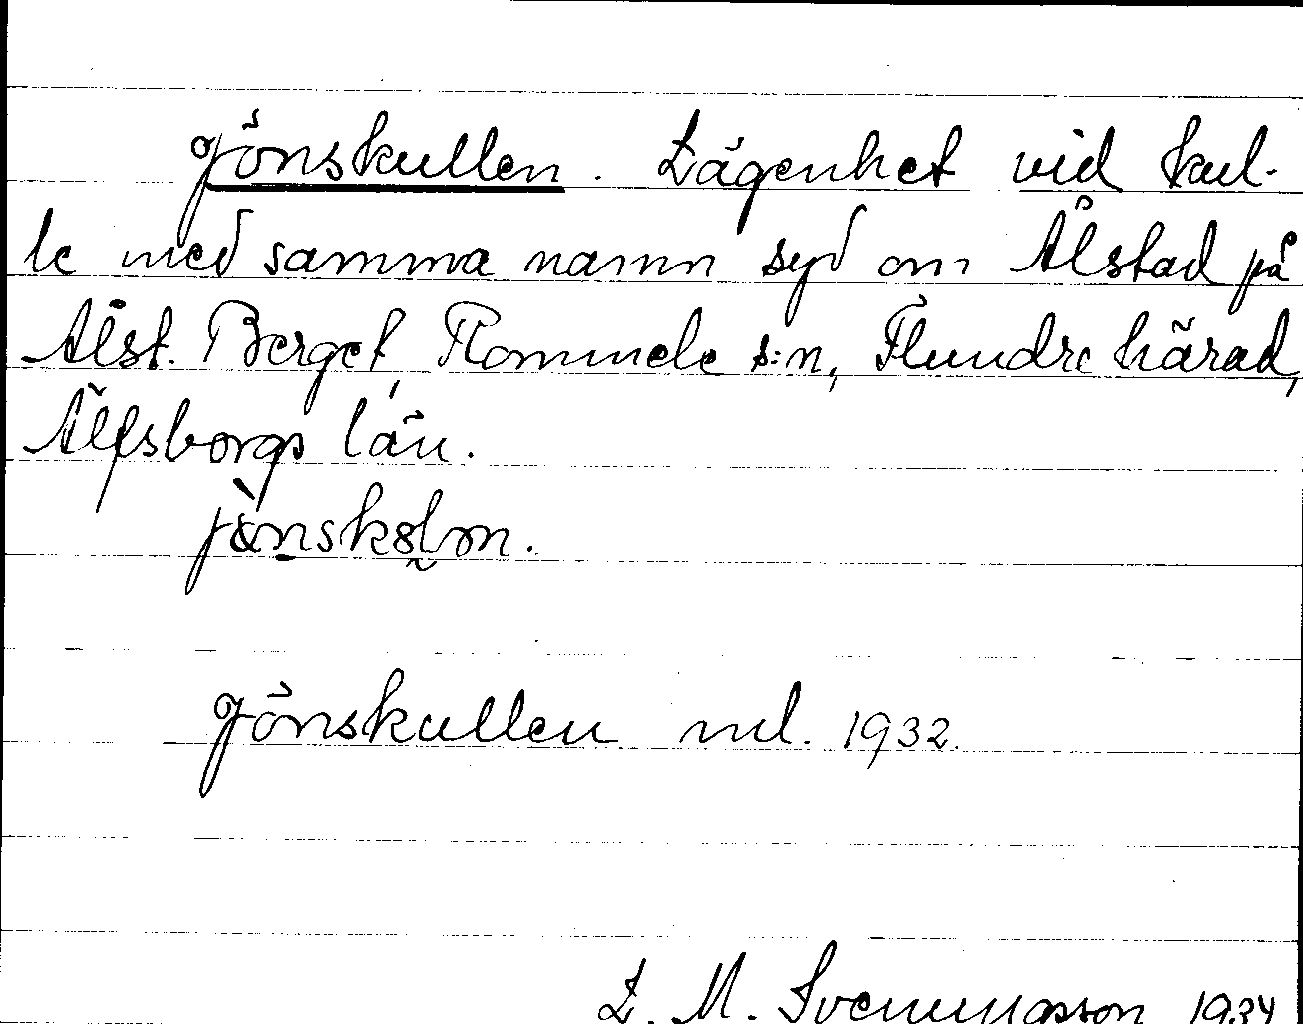 Jönskullen. Lägenhet vid kul-
le med samma namn syd om Ålstad på
Ålst. Berget, Rommele s:n, Flundre härad,
Älfsborgs län.
Jönskullen ml. 1932.
L. M. Svenungsson 1934